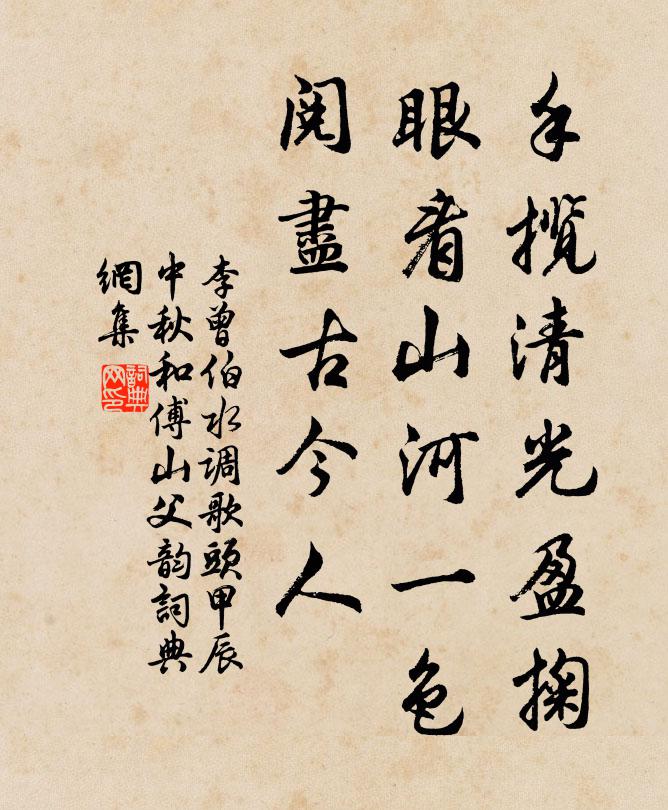 手攬清光盈掬
眼看山河一色
閱盡古今人
李曾伯水调歌頭甲辰
中秋和傅山父韵詞典
網集
詞典
网印